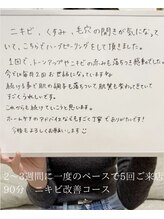 ニキビ、くすみ、毛穴の開きが気になっていて、こちらでハーブピーリングをして頂きました。
1回で、トーンアップやニキビの赤みも落ちつき感動でした。
今では毎月2回お世話になっています。
続ける事で肌の調子も落ちついて肌質も変わってきて
すごくうれしいです。
これからも続けていこうと思います。
ホームケアのアドバイスなども
すごく丁寧でありがたいです!
今後もよろしくお願いします
2~3週間に一度のペースで5回ご来店
90分 ニキビ改善コース